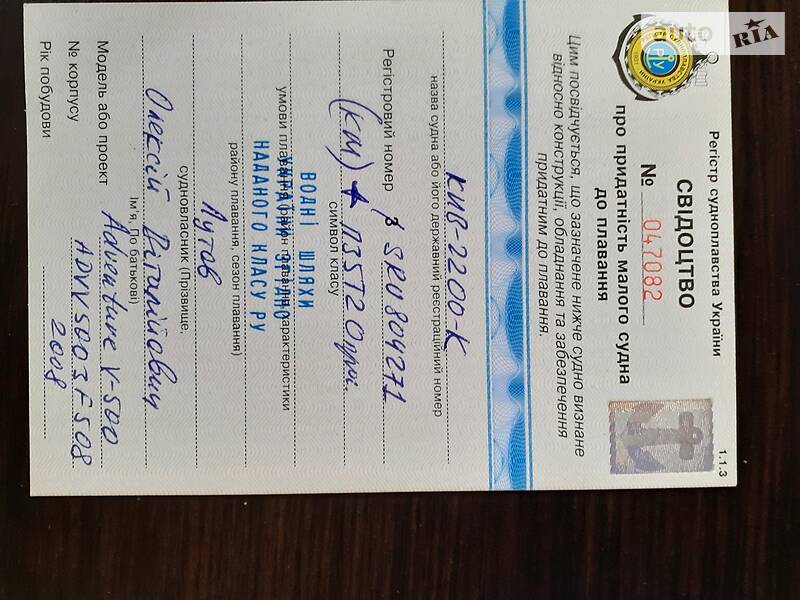 auto RIA
1.1.3
Регістр судноплавства України
СВІДОЦТВО
№ 047082
про придатність малого судна
до плавання
Цим посвідчується, що зазначене нижче судно визнане
відносно конструкції, обладнання та забезпечення
придатним до плавання.
КИВ-2200-К
назва судна або його державний реєстраційний номер
Регістровий номер 3 SRU804271
(КМ)
символ класу
ВОДНІ ШЛЯХИ
умови плавання
УКРАЇНИ ЗГІДНО
НАДАНОГО КЛАСУ РУ
району плавання, сезон плавання)
Лутов
судновласник (Прізвище,
Олексій Віталійович
Ім'я, По батькові)
Модель або проект Adventure V-500
№ корпусу ADVV5003F508
Рік побудови 2008